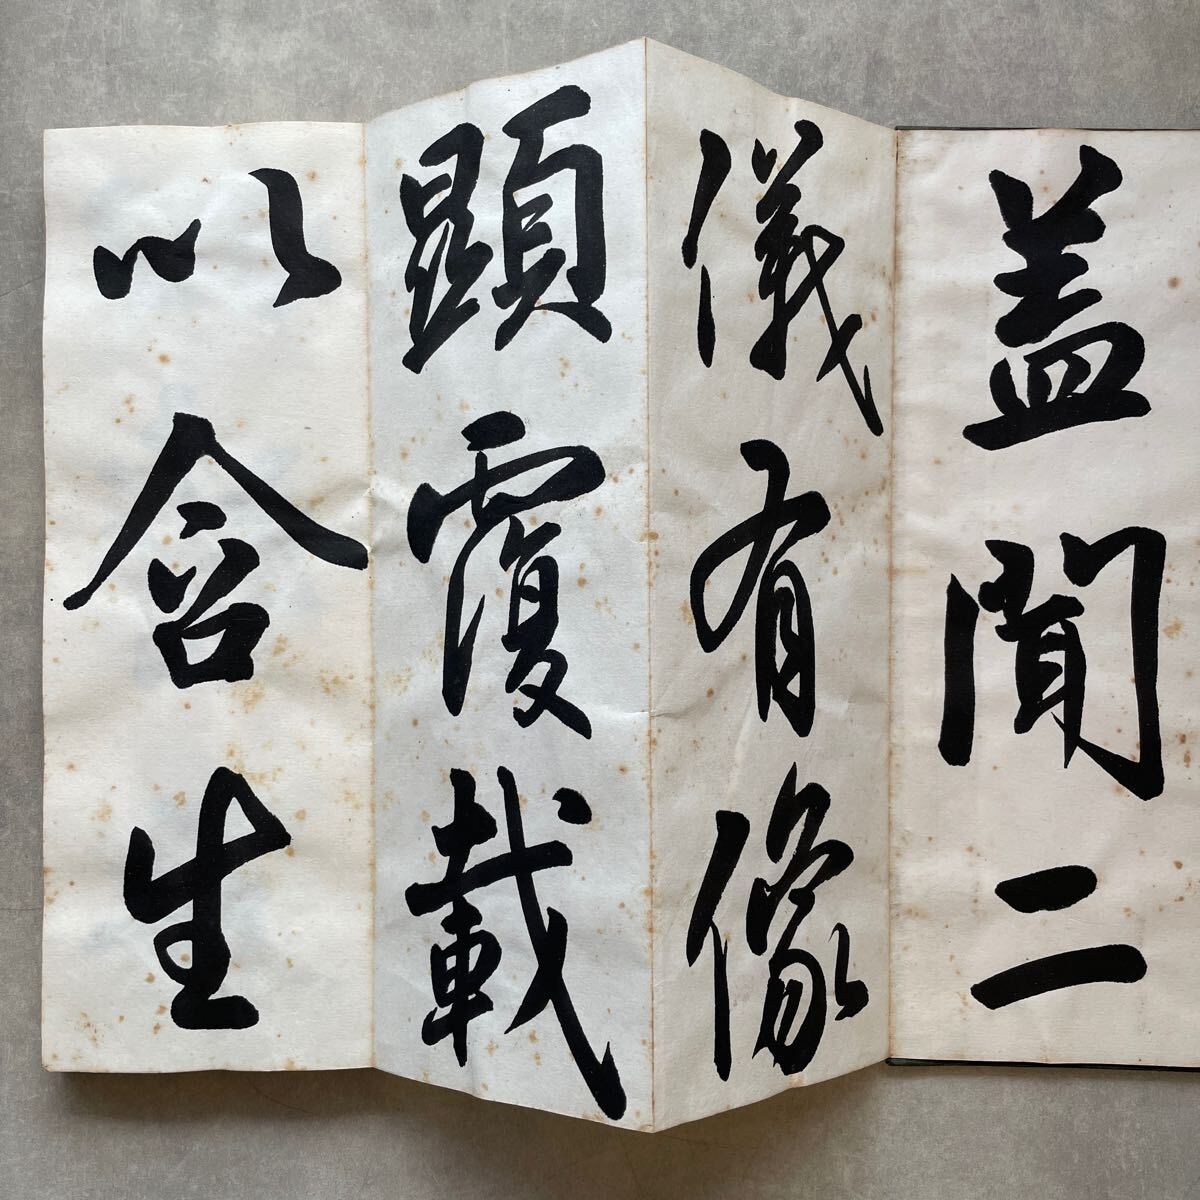 盖聞二
儀有像
顯覆載
以含生